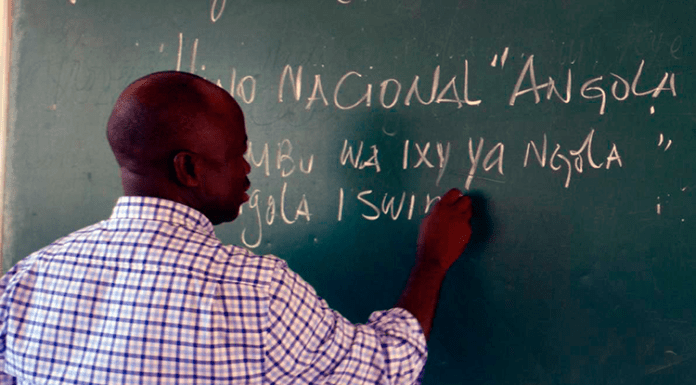 Hino Nacional "Angola
MBU WA IXY YA NGOLA "
gola ISWI